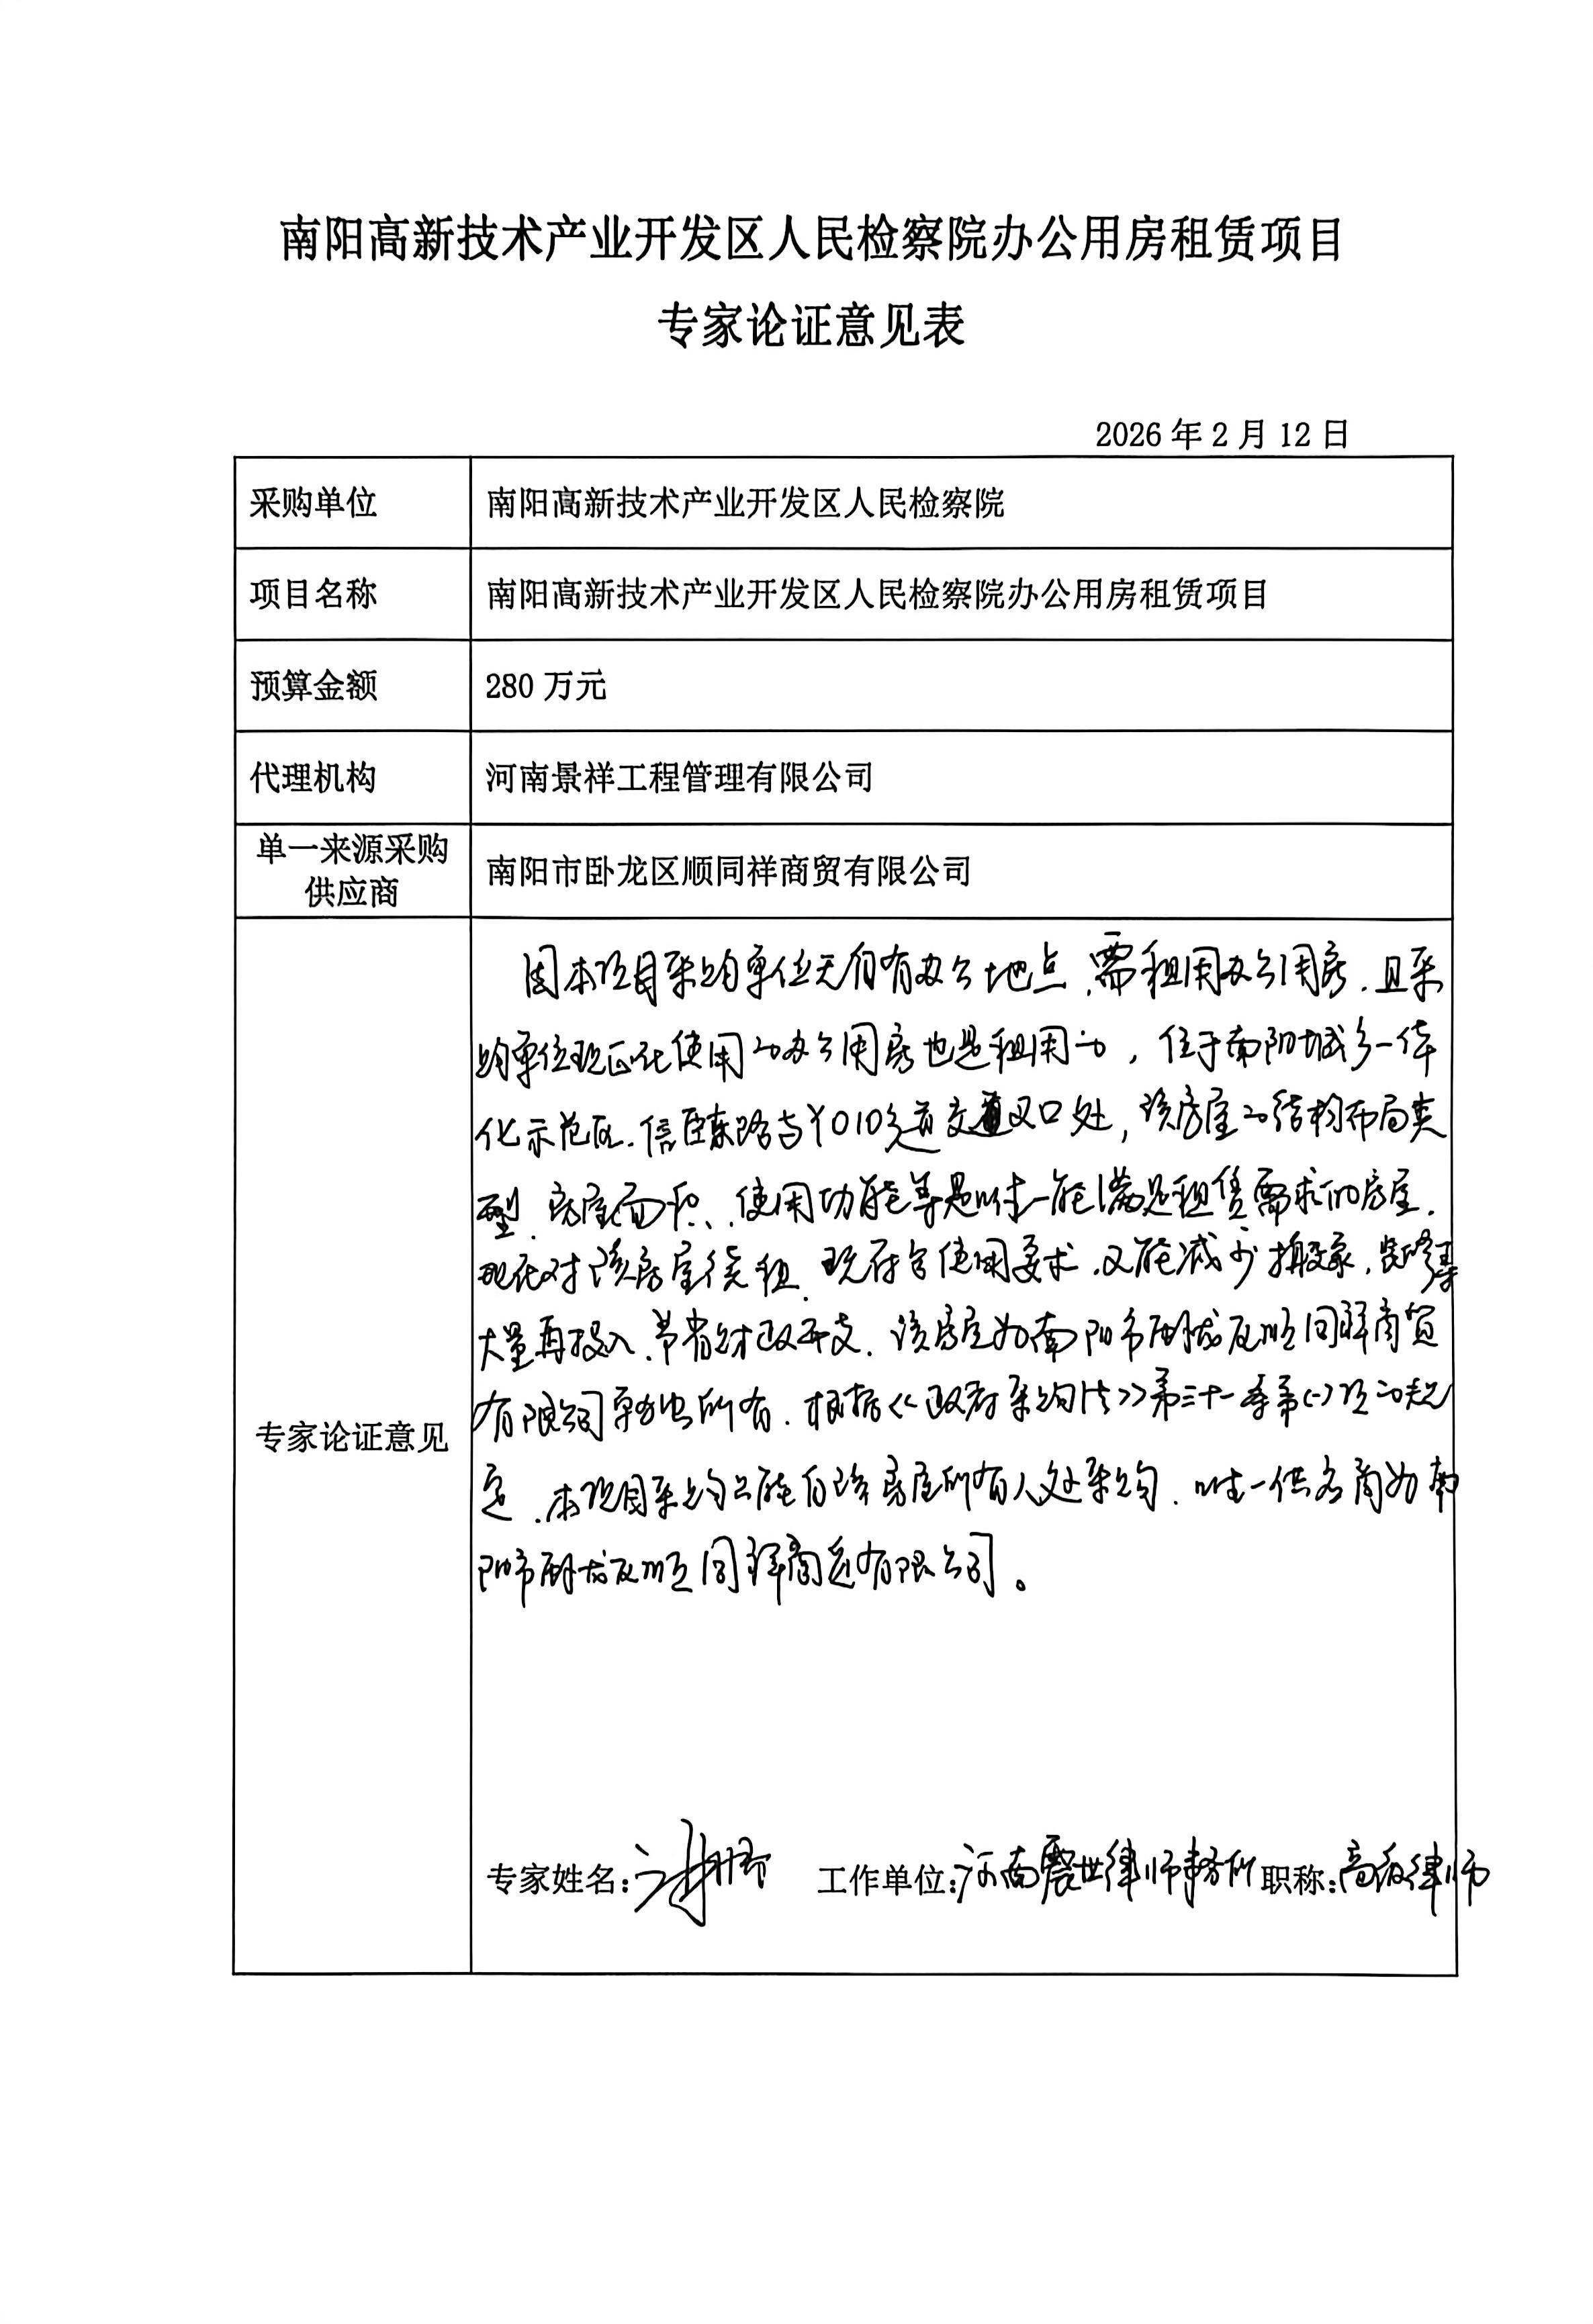 南阳高新技术产业开发区人民检察院办公用房租赁项目
专家论证意见表
2026年2月12日
采购单位
南阳高新技术产业开发区人民检察院
项目名称
南阳高新技术产业开发区人民检察院办公用房租赁项目
预算金额
280万元
代理机构
河南景祥工程管理有限公司
单一来源采购
供应商
南阳市卧龙区顺同祥商贸有限公司
专家论证意见
因本项目采购单位无自有办公地点,需租用办公用房,且采
购单位现正在使用的办公用房也是租用的,位于南阳城乡一体
化示范区信臣东路与Y010乡道交叉口处,该房屋的结构布局类
型、房屋面积、使用功能等是唯一能满足租赁需求的房屋。
现在对该房屋续租,既符合使用要求,又能减少搬家、装修等
大量再投入,节省财政开支。该房屋为南阳市卧龙区顺同祥商贸
有限公司单独所有。根据《政府采购法》第三十一条第(一)项的规
定,本项目采购只能自该房屋所有人处采购,唯一供应商为南
阳市卧龙区顺同祥商贸有限公司。
专家姓名: 工作单位:河南震世律师事务所 职称:高级律师